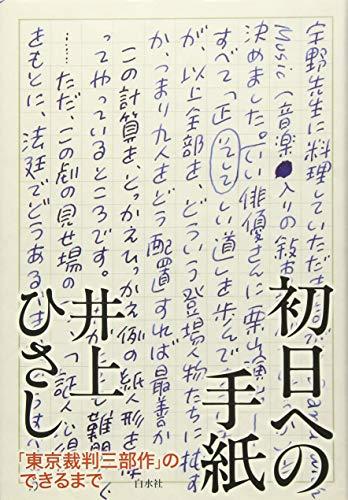 宇野先生に料理していただ
Music（音楽 入りの敍
決めました。「いい俳優さんに栗山演
すべて「正 しい道」を歩んで
が、以上全部を、どういう登場人物たちに托
か つまり九人をどう配置すれば最善か
この計算を、とっかえひっかえ例の紙人形を
ってやっているところです。
……ただ、この劇の見せ場の
をもとに、法廷でどうある
初日への
手紙
井上
ひさし
「東京裁判三部作」の
できるまで
白水社